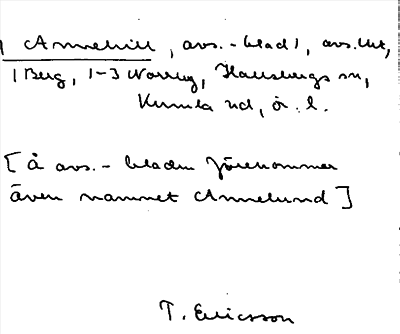 1 Annehill, avs.-blad 1, avs. Ut,
1 Berg, 1-3 Norrby, Hallsbergs sn,
Kumla hd, ör. l.
[å avs.- bladen förekommer
även namnet Annelund]
T. Ericsson